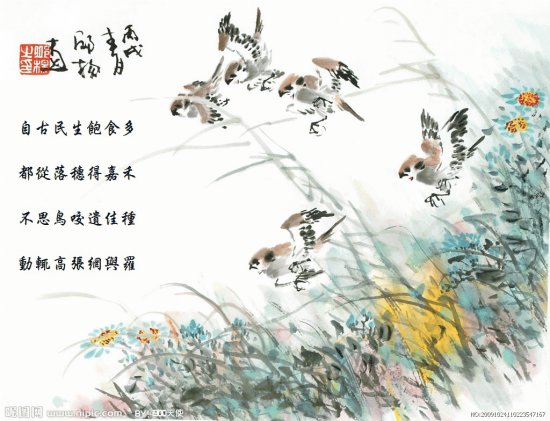 丙戌
自古民生飽食多
都從落穗得嘉禾
不思鳥咬遺佳種
動輒高張網與羅
昵图网 www.nipic.com BY: 天使
NO:20091024110223547167